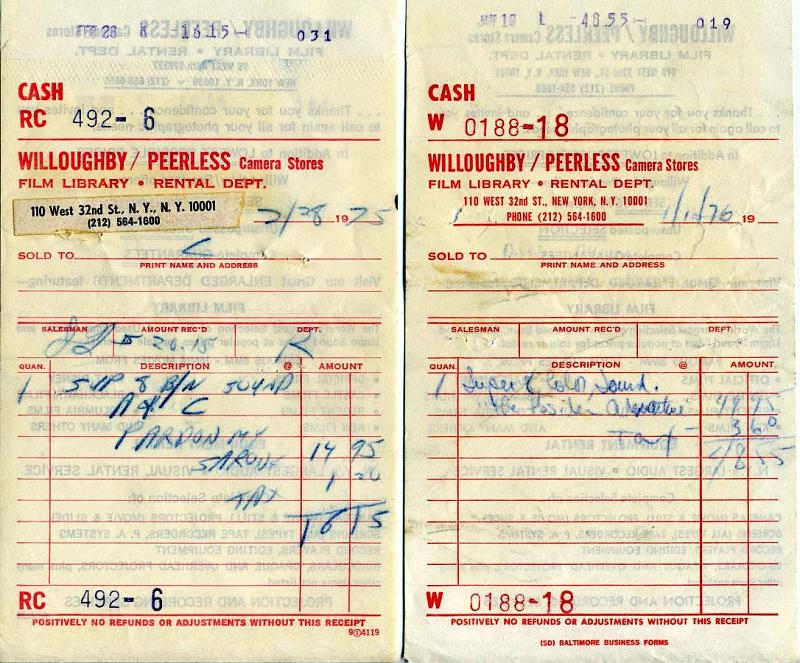 FEB 28 K -16.15- 031
CASH
RC 492-6
WILLOUGHBY/PEERLESS Camera Stores
FILM LIBRARY • RENTAL DEPT.
110 West 32nd St., N. Y., N. Y. 10001
(212) 564-1600
2/28 1975
SOLD TO
PRINT NAME AND ADDRESS
SALESMAN AMOUNT REC'D DEPT.
20.15 R
QUAN. DESCRIPTION @ AMOUNT
1 SUP 8 B/N SOUND
A & C
PARDON MY
SARONG 14 95
TAX 1 20
16 15
RC 492-6
POSITIVELY NO REFUNDS OR ADJUSTMENTS WITHOUT THIS RECEIPT
9①4119
10 L -48.55- 019
CASH
W 0188-18
WILLOUGHBY/PEERLESS Camera Stores
FILM LIBRARY • RENTAL DEPT.
110 WEST 32ND ST., NEW YORK, N.Y. 10001
PHONE (212) 564-1600
1/10/76 19
SOLD TO
PRINT NAME AND ADDRESS
SALESMAN AMOUNT REC'D DEPT.
QUAN. DESCRIPTION @ AMOUNT
1 Super 8 Color Sound.
"The Poseidon Adventure" 44.95
Tax - 3.60
48.55
W 0188-18
POSITIVELY NO REFUNDS OR ADJUSTMENTS WITHOUT THIS RECEIPT
(SD) BALTIMORE BUSINESS FORMS